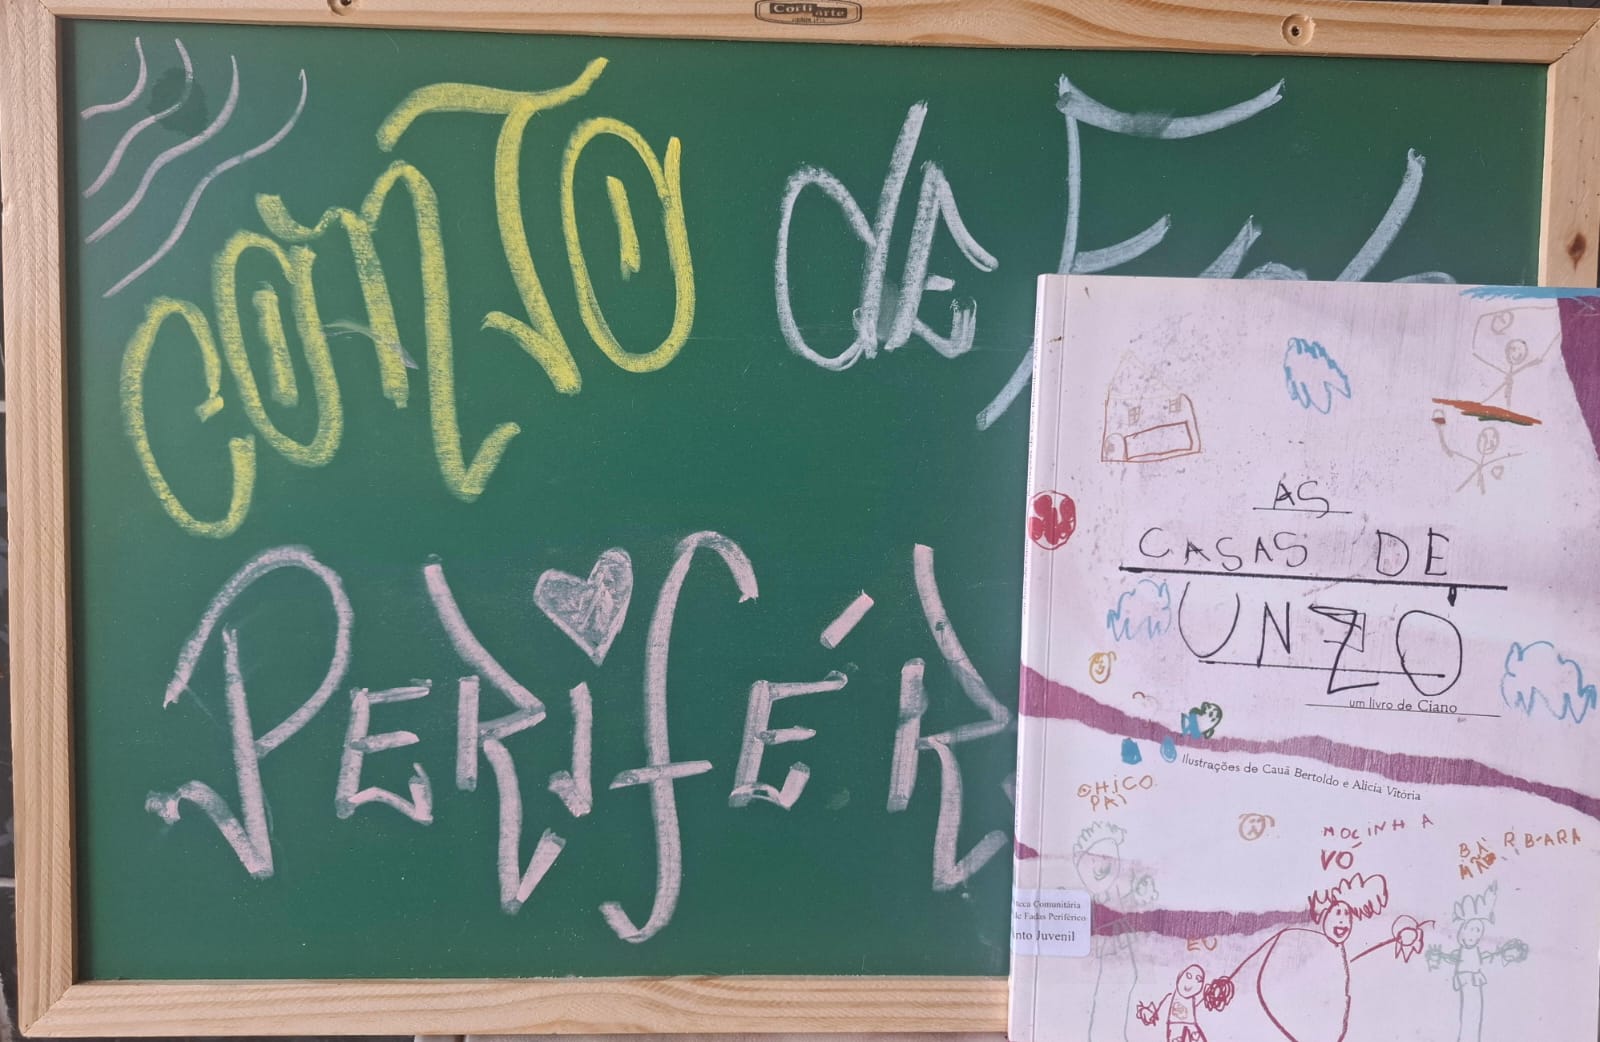 Corti arte
CONTO de F
PERIFÉR
AS
CASAS DE
UNZÓ
um livro de Ciano
Ilustrações de Cauã Bertoldo e Alicia Vitória
CHICO
PAI
MOCINHA
VÓ
BÁRBARA
MÃE
EU
teca Comunitária
de Fadas Periférico
nto Juvenil